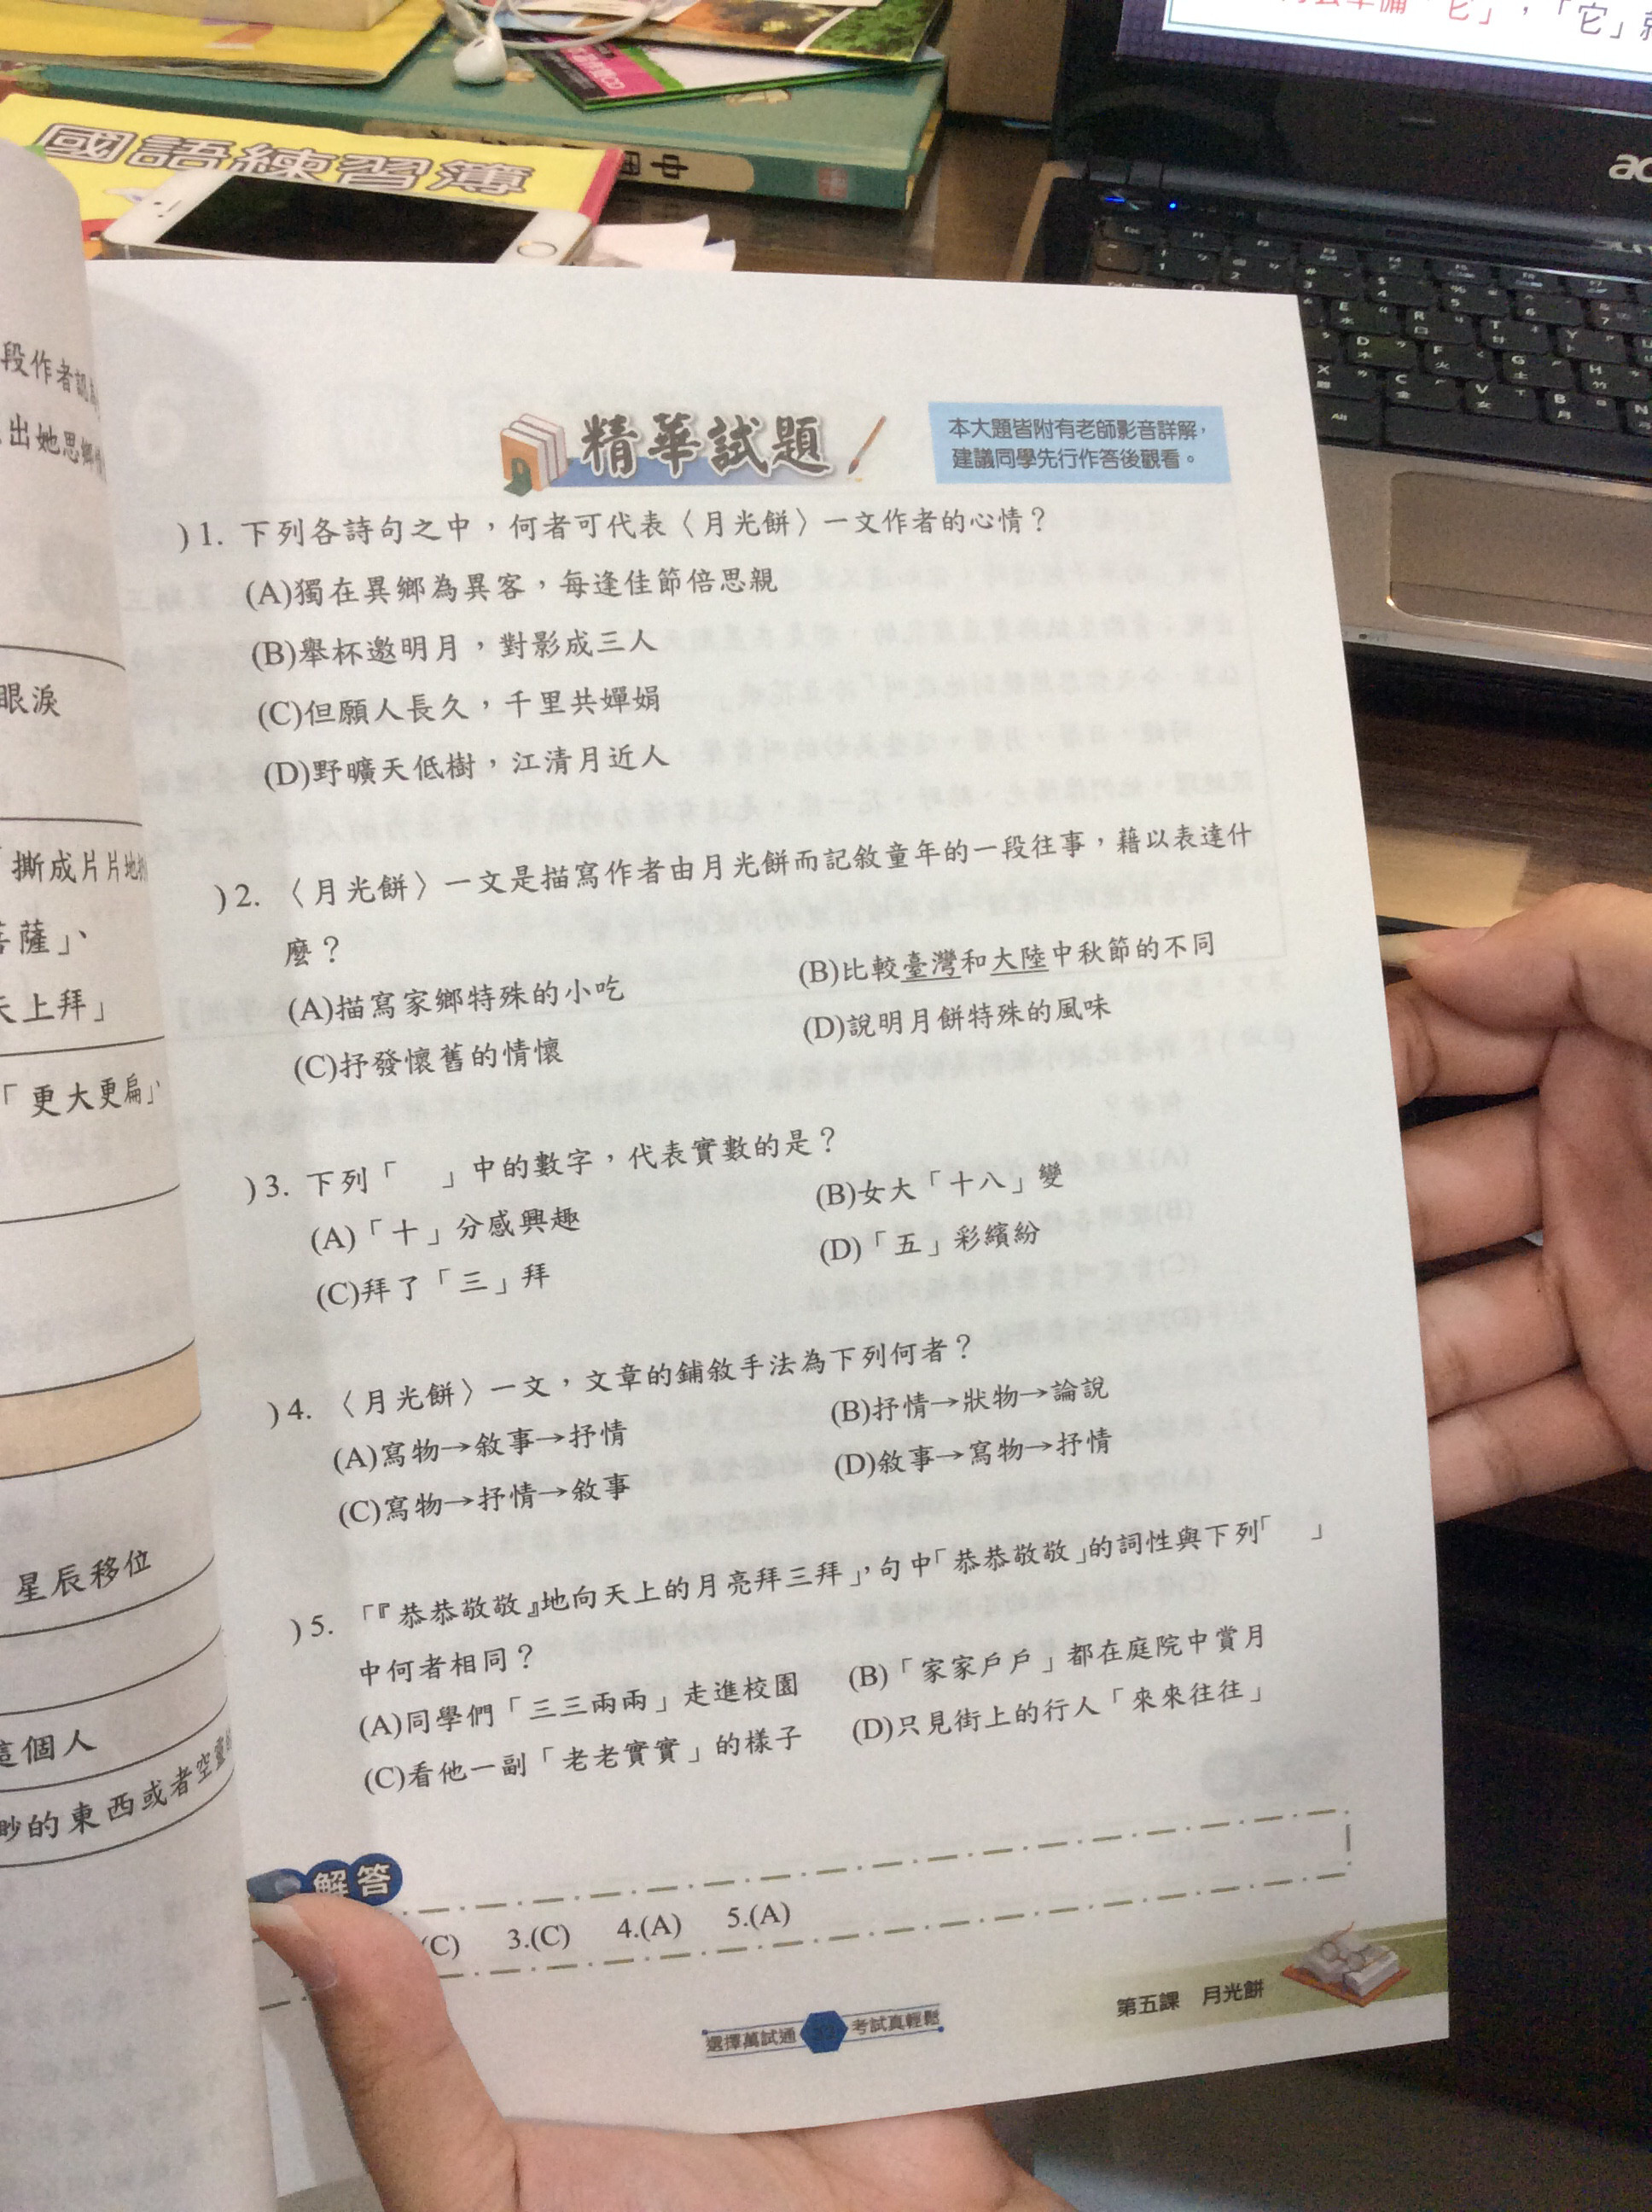 「它」,「它」
國語練習簿
中
精華試題
本大題皆附有老師影音詳解,
建議同學先行作答後觀看。
)1. 下列各詩句之中,何者可代表〈月光餅〉一文作者的心情?
(A)獨在異鄉為異客,每逢佳節倍思親
(B)舉杯邀明月,對影成三人
(C)但願人長久,千里共嬋娟
(D)野曠天低樹,江清月近人
)2. 〈月光餅〉一文是描寫作者由月光餅而記敘童年的一段往事,藉以表達什
麼?
(A)描寫家鄉特殊的小吃 (B)比較臺灣和大陸中秋節的不同
(C)抒發懷舊的情懷 (D)說明月餅特殊的風味
)3. 下列「 」中的數字,代表實數的是?
(A)「十」分感興趣 (B)女大「十八」變
(C)拜了「三」拜 (D)「五」彩繽紛
)4. 〈月光餅〉一文,文章的鋪敘手法為下列何者?
(A)寫物→敘事→抒情 (B)抒情→狀物→論說
(C)寫物→抒情→敘事 (D)敘事→寫物→抒情
)5. 「『恭恭敬敬』地向天上的月亮拜三拜」,句中「恭恭敬敬」的詞性與下列「 」
中何者相同?
(A)同學們「三三兩兩」走進校園 (B)「家家戶戶」都在庭院中賞月
(C)看他一副「老老實實」的樣子 (D)只見街上的行人「來來往往」
解答
(C) 3.(C) 4.(A) 5.(A)
第五課 月光餅
選擇萬試通 考試真輕鬆
段作者認為
出她思鄉
眼淚
「撕成片片地
菩薩」、
天上拜」
「更大更扁」、
星辰移位
這個人
渺的東西或者空靈